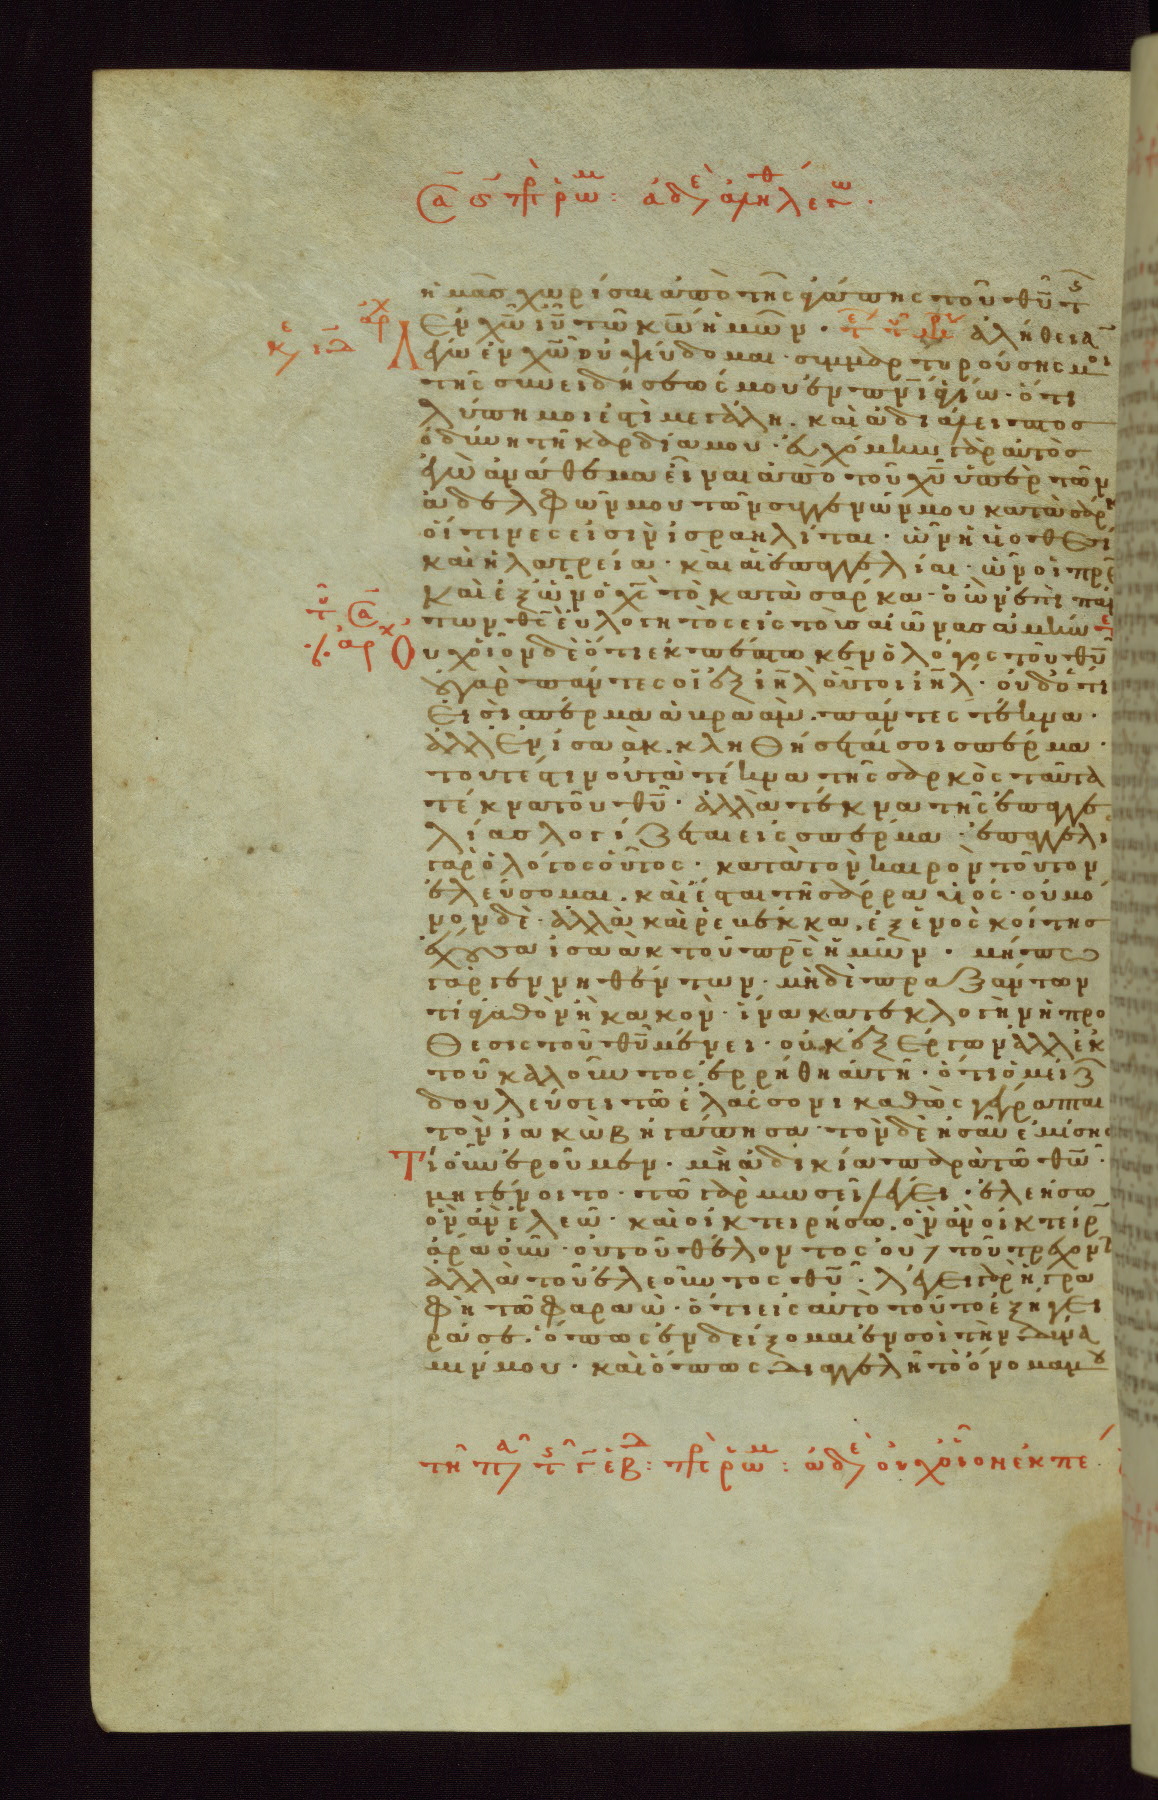 ἡμᾶς χωρίσαι ἀπὸ τῆς ἀγάπης τοῦ θῦ τῆς
ἐν χῶ ιῦ τῶ κῶ ἡμῶν · ἀλήθειαν
λέγω ἐν χῶ οὐ ψεύδομαι · συμμαρτυρούσης μοι
τῆς συνειδήσεώς μου ἐν πνι ἁγίω · ὅτι
λύπη μοι ἐστὶ μεγάλη · καὶ ἀδιάλειπτος
ὀδύνη τῆ καρδία μου · εὐχόμην γὰρ αὐτὸς
ἐγὼ ἀνάθεμα εἶναι ἀπὸ τοῦ χῦ ὑπὲρ τῶν
ἀδελφῶν μου τῶν συγγενῶν μου κατὰ σάρκα
οἵτινες εἰσὶν ἰσραηλίται · ὧν ἡ υἱοθεσί
καὶ ἡ λατρεία · καὶ αἱ ἐπαγγελίαι · ὧν οἱ πρες
καὶ ἐξ ὧν ὁ χς τὸ κατὰ σάρκα · ὁ ὢν ἐπὶ πάν
των θς εὐλογητὸς εἰς τοὺς αἰῶνας ἀμήν
Οὐχ οἷον δὲ ὅτι ἐκπέπτωκεν ὁ λόγος τοῦ θῦ
οὐ γὰρ πάντες οἱ ἐξ ιηλ οὗτοι ιηλ · οὐδ' ὅτι
εἰσὶ σπέρμα ἀβραὰμ · πάντες τέκνα ·
ἀλλ' ἐν ἰσαὰκ · κληθήσεταί σοι σπέρμα ·
τουτέστιν οὐ τὰ τέκνα τῆς σαρκὸς ταῦτα
τέκνα τοῦ θῦ · ἀλλὰ τέκνα τῆς ἐπαγγε
λίας λογίζεται εἰς σπέρμα · ἐπαγγελί
γὰρ ὁ λόγος οὗτος · κατὰ τὸν καιρὸν τοῦτον
ἐλεύσομαι · καὶ ἔσται τῆ σάρρα υἱός · οὐ μό
νον δὲ · ἀλλὰ καὶ ῥεβέκκα · ἐξ ἑνὸς κοίτης
ἔχουσα ἰσαὰκ τοῦ πρς ἡμῶν · μήπω
γὰρ γεννηθέντων · μηδὲ πραξάντων
τι ἀγαθὸν ἢ κακὸν · ἵνα κατ' ἐκλογὴν ἡ πρό
θεσις τοῦ θῦ μένει · οὐκ ἐξ ἔργων ἀλλ' ἐκ
τοῦ καλοῦντος ἐρρήθη αὐτῆ · ὅτι ὁ μείζων
δουλεύσει τῶ ἐλάσσονι καθὼς γέγραπται
τὸν ἰακὼβ ἠγάπησα · τὸν δὲ ἠσαῦ ἐμίσησα
Τί οὖν ἐροῦμεν · μὴ ἀδικία παρὰ τῶ θῶ ·
μὴ γένοιτο · τῶ γὰρ μωσεῖ λέγει · ἐλεήσω
ὃν ἂν ἐλεῶ · καὶ οἰκτειρήσω · ὃν ἂν οἰκτείρω
ἄρα οὖν · οὐ τοῦ θέλοντος οὐδὲ τοῦ τρέχοντος
ἀλλὰ τοῦ ἐλεοῦντος θῦ · λέγει γὰρ ἡ γρα
φὴ τῶ φαραὼ · ὅτι εἰς αὐτὸ τοῦτο ἐξήγει
ρά σε · ὅπως ἐνδείξομαι ἐν σοὶ τὴν δύνα
μίν μου · καὶ ὅπως διαγγελῆ τὸ ὄνομά μου